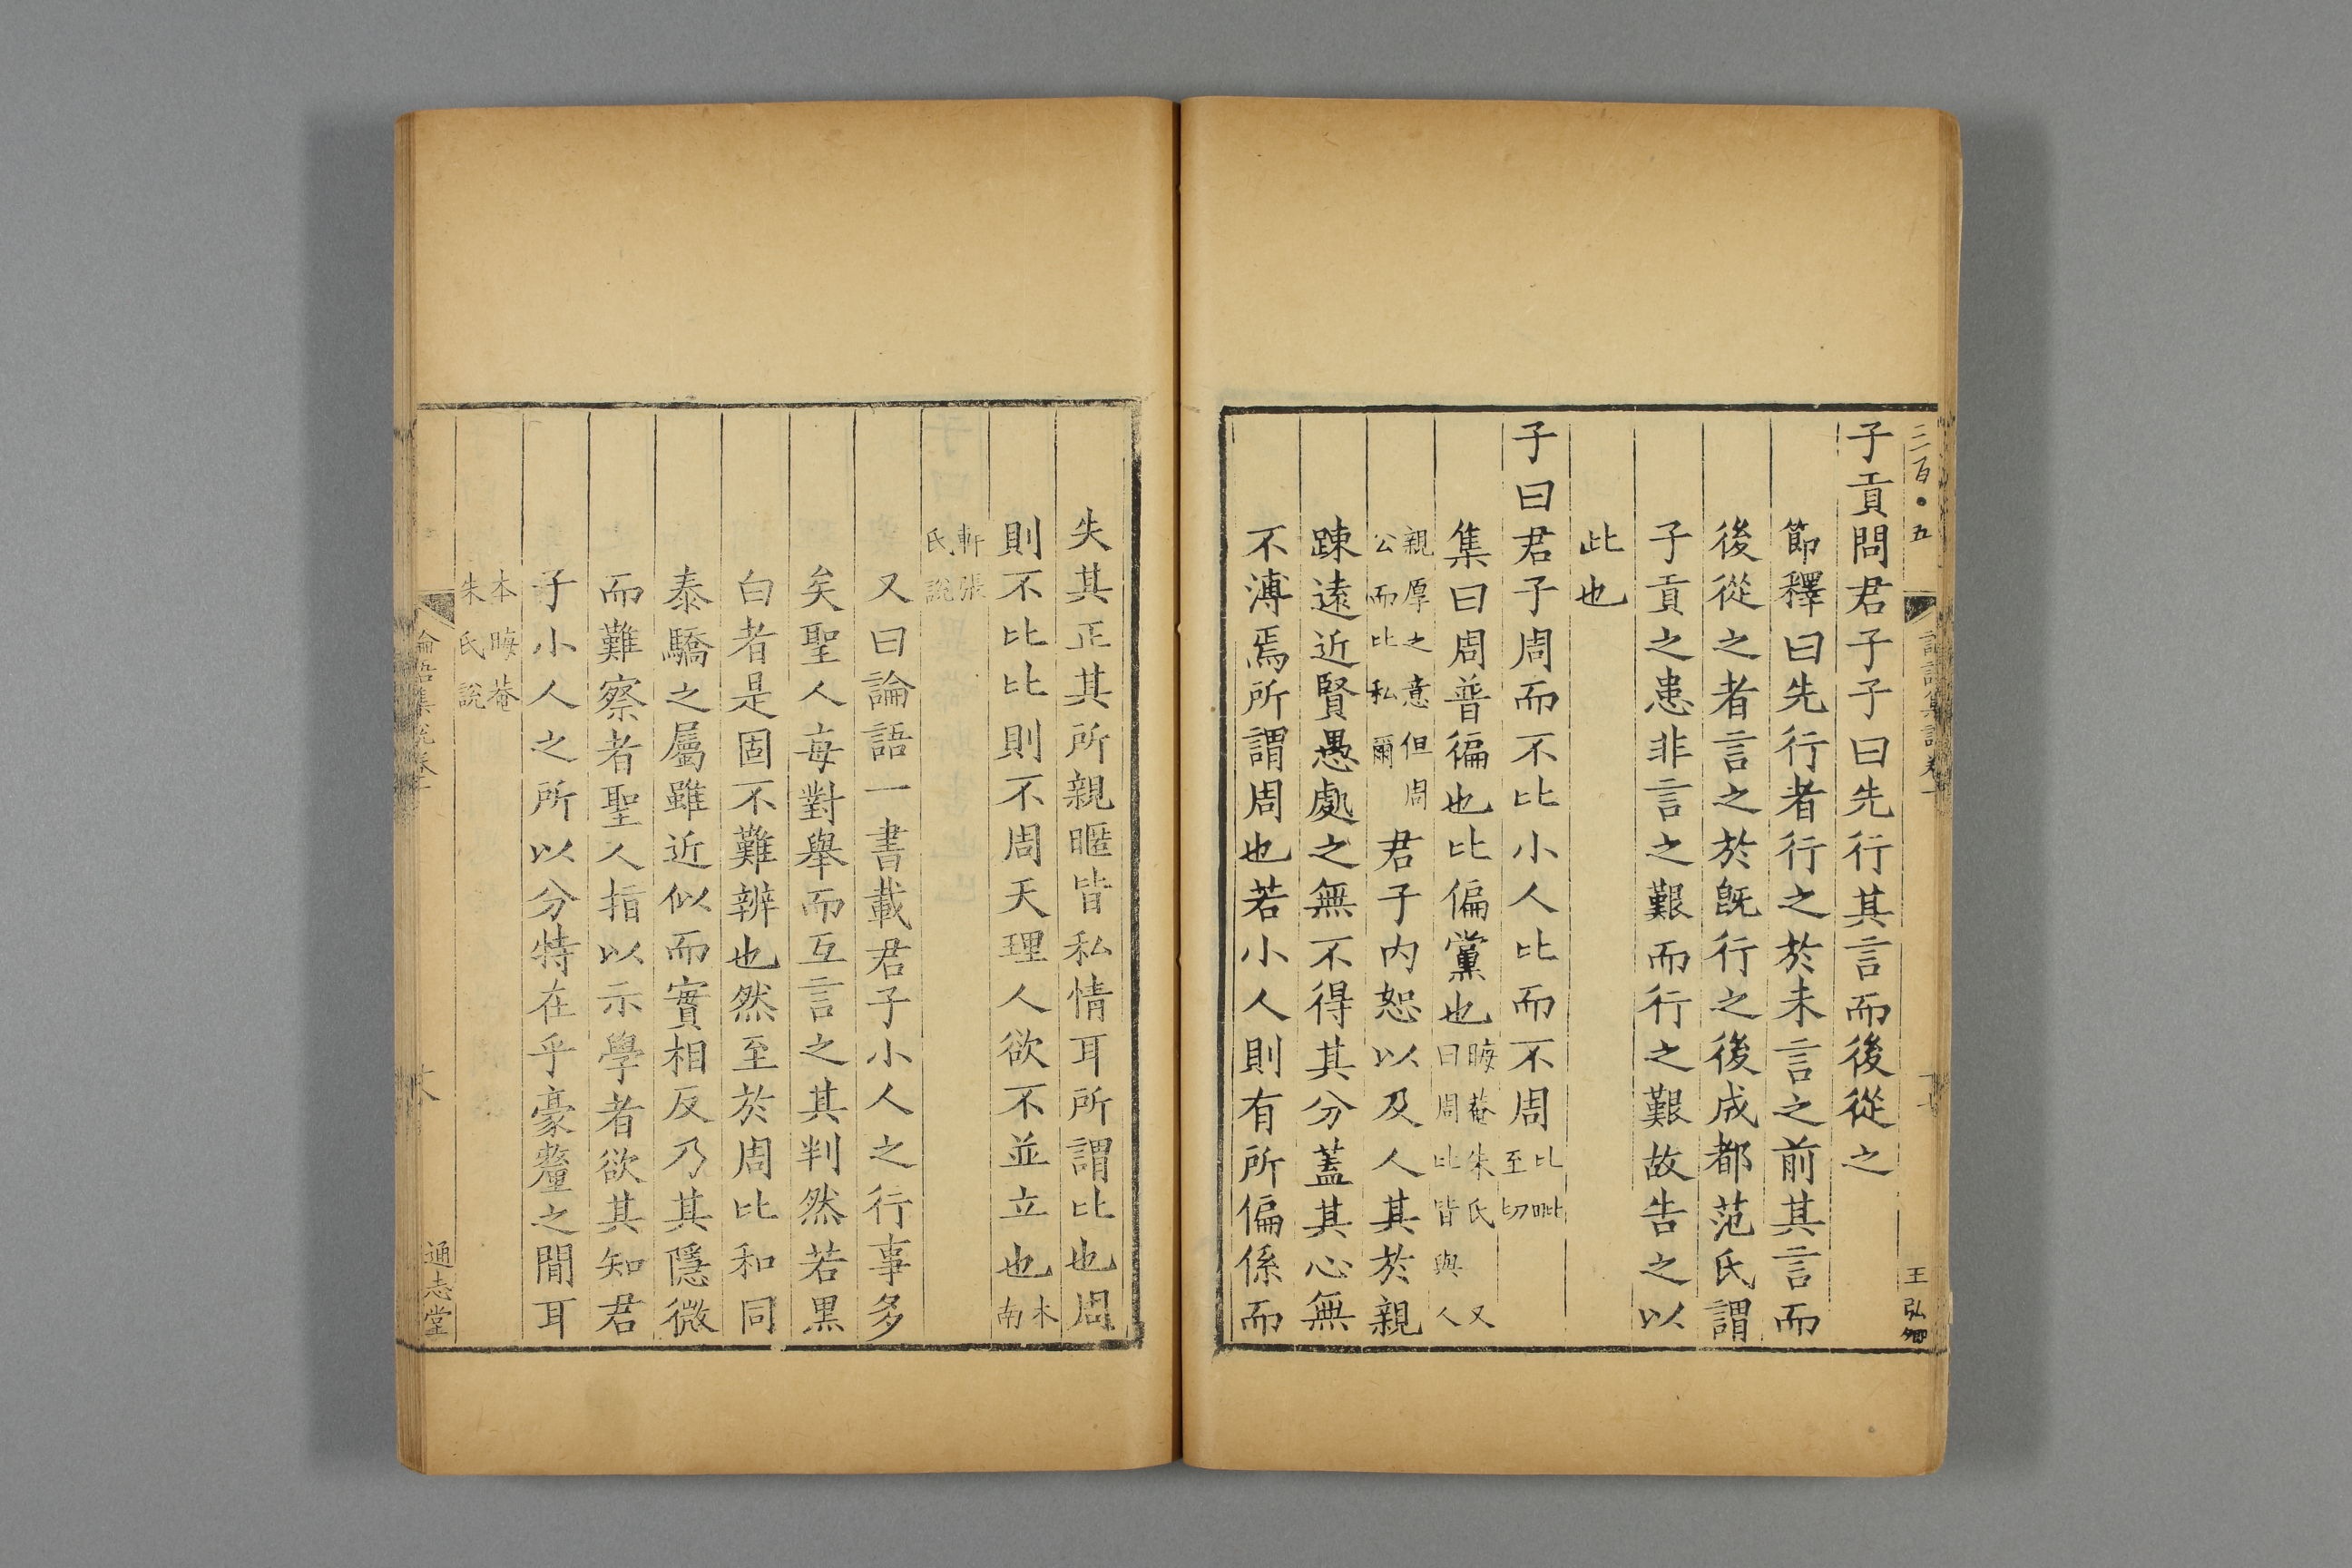 三百·五
王弘卿
子貢問君子子曰先行其言而後從之
節釋曰先行者行之於未言之前其言而
後從之者言之於旣行之後成都范氏謂
子貢之患非言之艱而行之艱故告之以
此也
子曰君子周而不比小人比而不周比毗至切
集曰周普徧也比偏黨也晦菴朱氏曰周比皆與又人
親厚之意但周公而比私爾君子内恕以及人其於親
踈遠近賢愚處之無不得其分蓋其心無
不溥焉所謂周也若小人則有所偏係而
失其正其所親暱皆私情耳所謂比也周
則不比比則不周天理人欲不並立也本南
軒張氏說
又曰論語一書載君子小人之行事多
矣聖人每對舉而互言之其判然若黒
白者是固不難辨也然至於周比和同
泰驕之屬雖近似而實相反乃其隱微
而難察者聖人指以示學者欲其知君
子小人之所以分特在乎豪釐之間耳
本晦菴朱氏說
論語集說卷一
通志堂